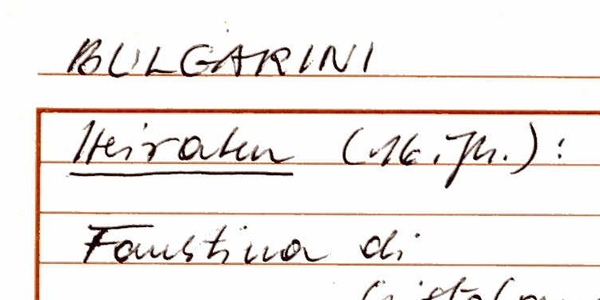 BULGARINI
Heiraten (16. Jh.):
Faustina di